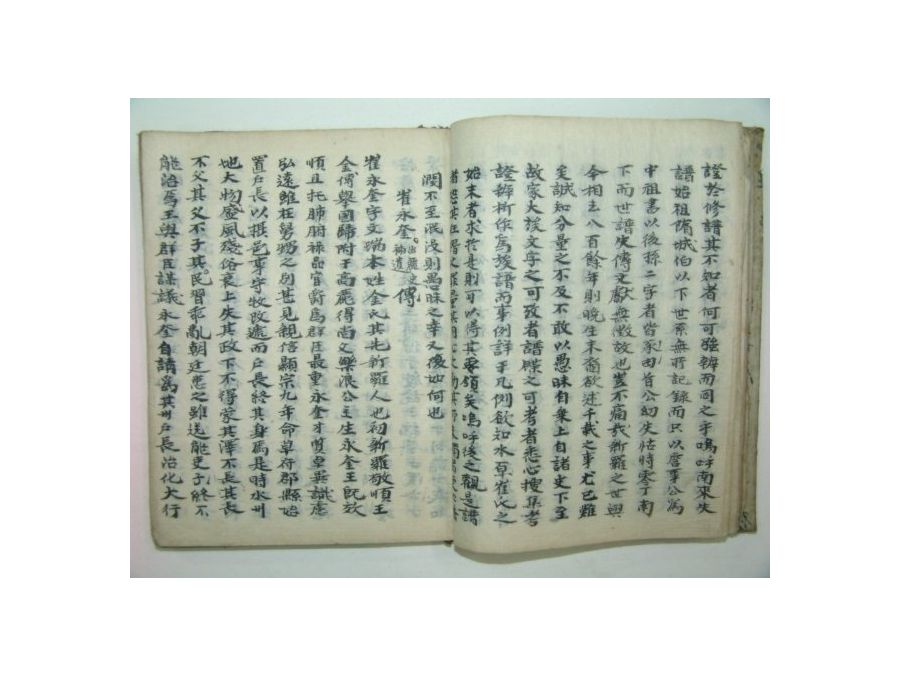 證於修譜其不知者何可強辨而同之乎嗚呼南來失
譜始祖隋城伯以下世系無所記錄而只以詹事公爲
中祖書以後孫二字者皆家曲首公幼失怙時零丁南
下而世譜失傳文獻無徵故也豈不痛哉新羅之世與
今相去八百餘年則晚生末裔欲述千載之事尤已難
矣誠知分量之不及不敢以愚昧自棄上自諸史下至
故家大族文字之可考者譜牒之可考者悉心搜集考
證辨析作爲族譜而事例詳于凡例欲知水原崔氏之
始末者求於是則可以得其要領矣嗚呼後之觀是譜
潤不至泯沒則愚昧之幸又復如何也
崔永奎 傳
崔永奎字文瑞本姓金氏其先新羅人也初新羅敬順王
金傅擧國歸附于高麗得尚文樂浪公主生永奎王旣放
順且托肺腑祿品官爵爲群臣最重永奎才質卓異識慮
弘遠雖在芻豢之列甚見親信顯宗九年命革府郡縣始
置戶長以摠邑事守牧改遞而戶長終其身焉是時水州
地大物盛風殘俗衰上失其政下不得蒙其澤不長其長
不父其父不子其民習乖亂朝廷患之雖送能吏子終不
能治焉王與群臣謀議永奎自請爲其州戶長治化大行